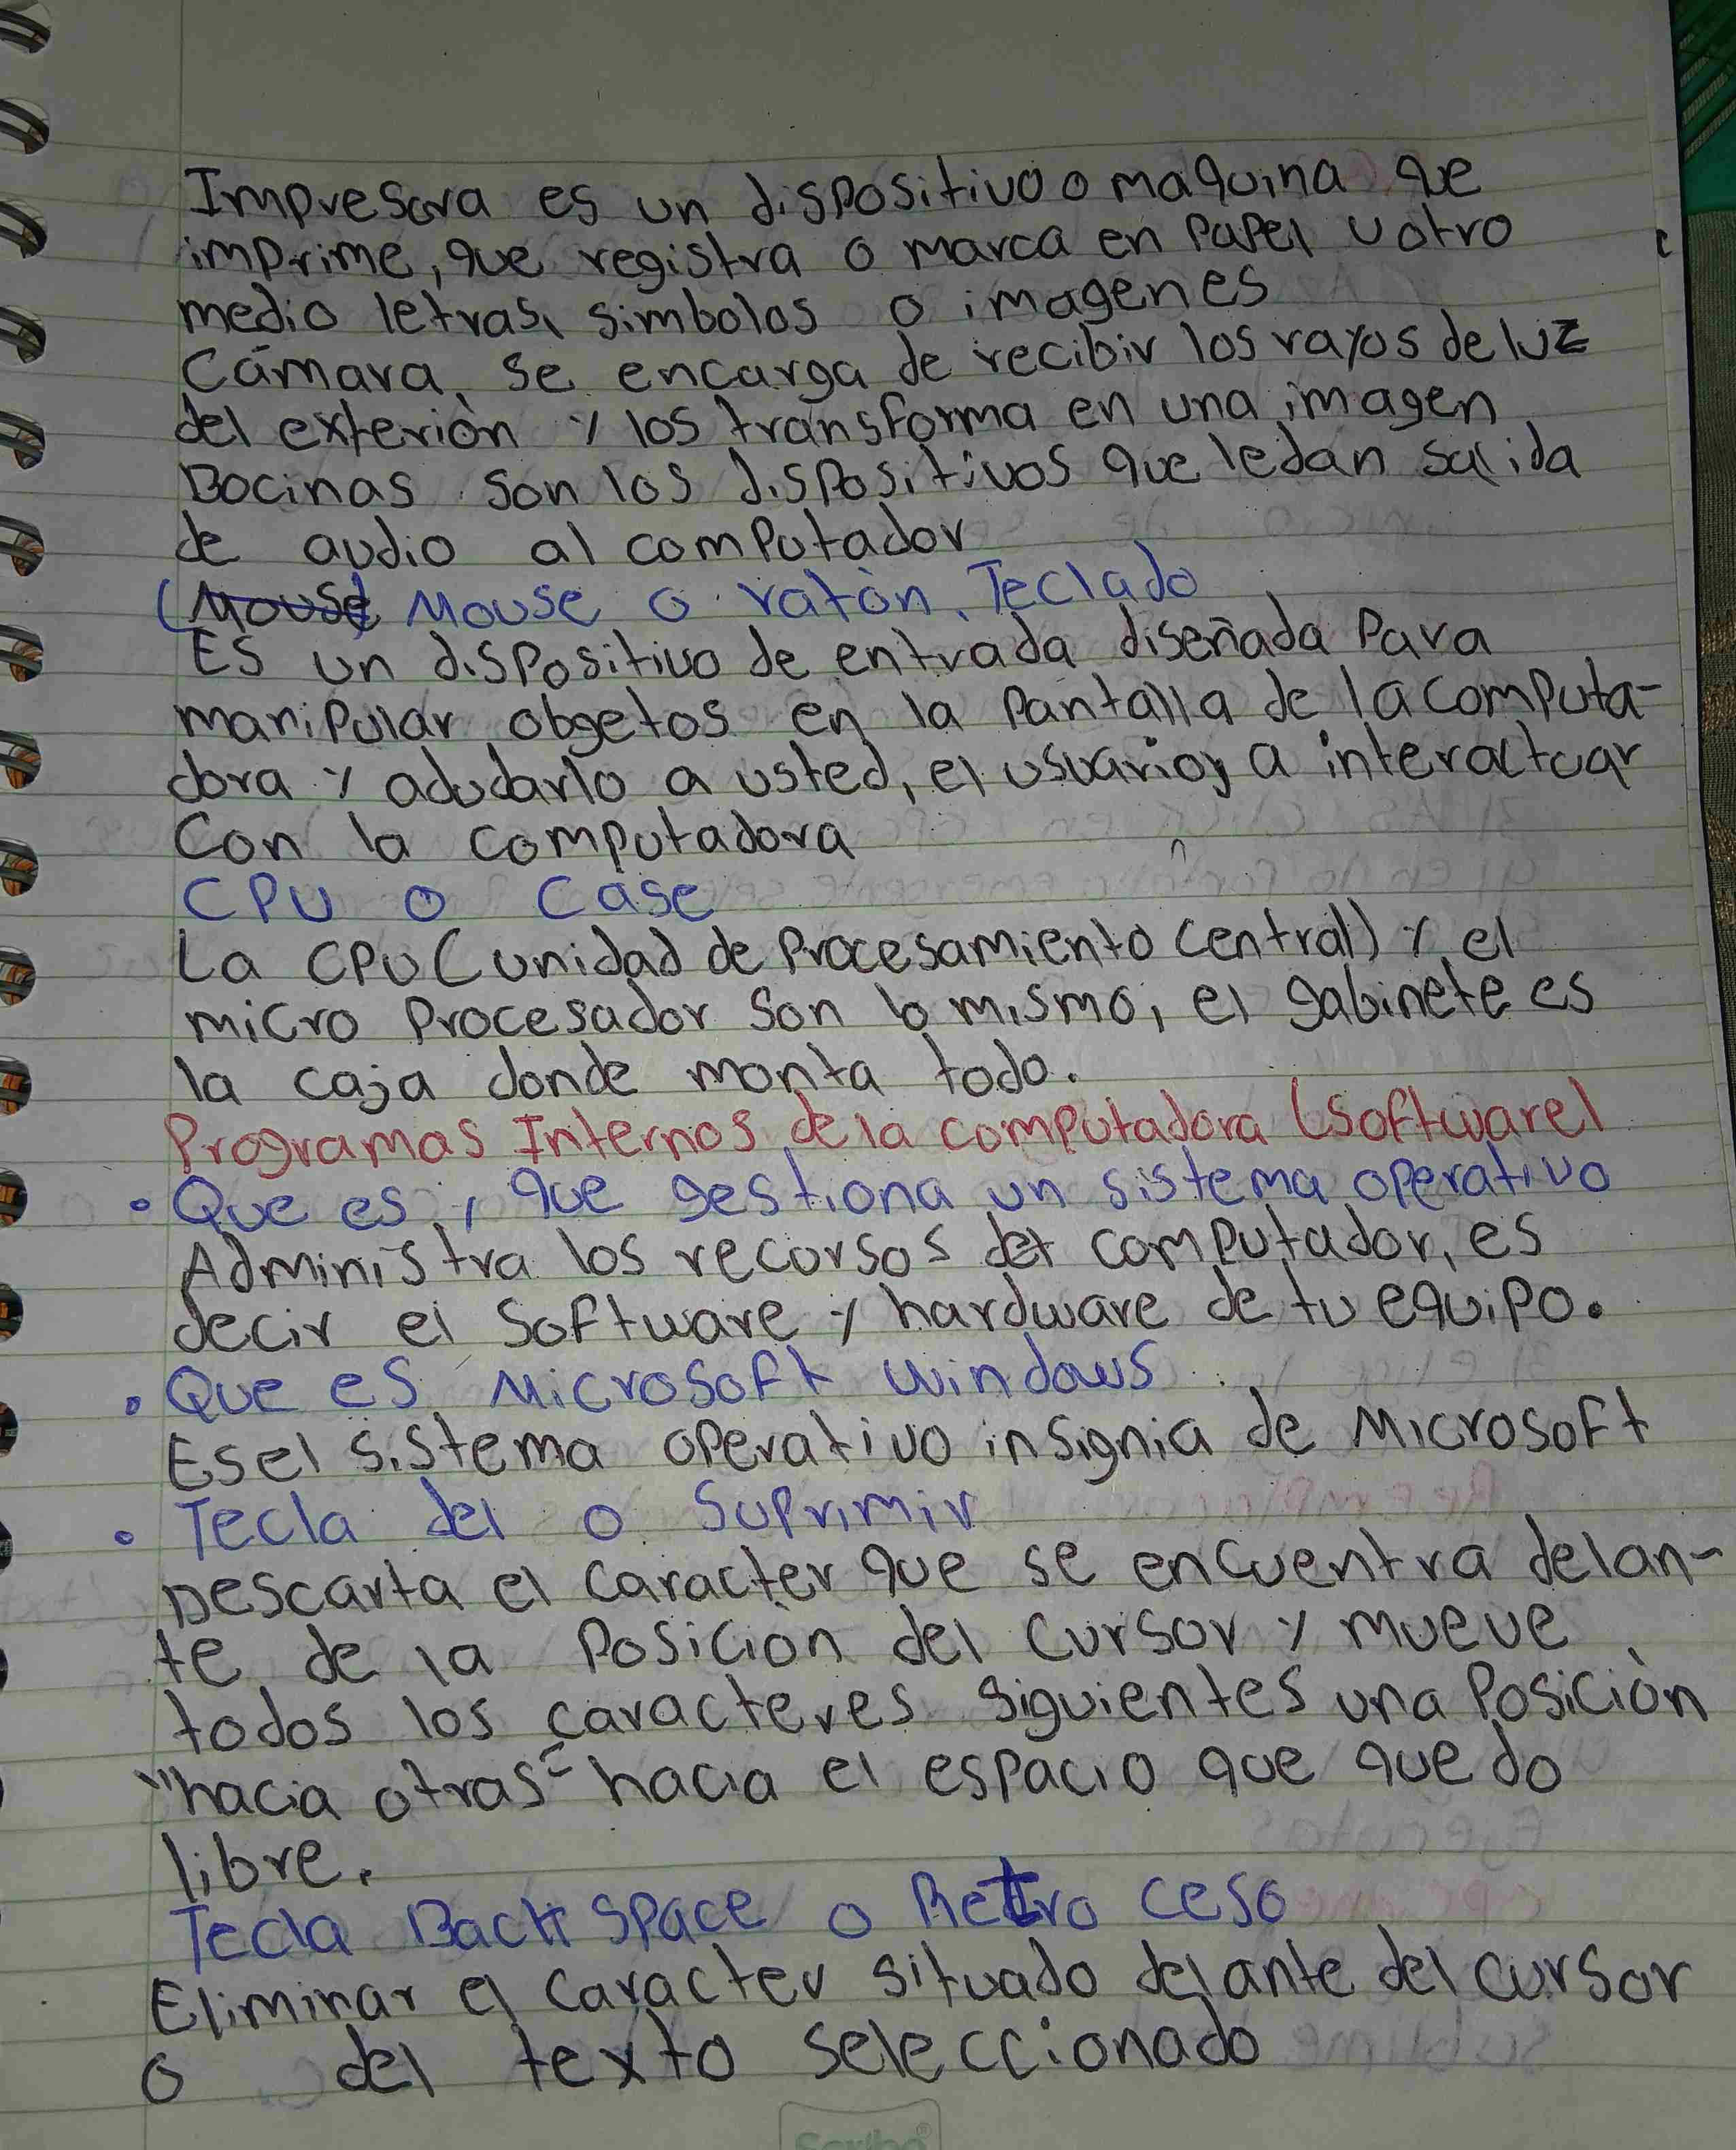 Impresora es un dispositivo o maquina que
imprime, que registra o marca en Papel u otro
medio letras, simbolos o imagenes
Cámara, se encarga de recibir los rayos de luz
del exterión y los transforma en una imagen
Bocinas son los dispositivos que le dan salida
de audio al computador
(Mouse) Mouse o ratón, Teclado
Es un dispositivo de entrada diseñada Para
manipular obgetos en la Pantalla de la computa-
dora y adudarlo a usted, el usuario, a interactuar
Con la computadora
CPU o Case
La CPU (unidad de Procesamiento central) y el
micro Procesador son lo mismo, el gabinete es
la caja donde monta todo.
Programas Internos de la computadora (software)
• Que es, y que gestiona un sistema operativo
Administra los recursos del computador, es
decir el software y hardware de tu equipo.
• Que es Microsoft Windows
Es el sistema operativo insignia de Microsoft
• Tecla del o Suprimir
Descarta el caracter que se encuentra delan-
te de la Posición del cursor y mueve
todos los caracteres siguientes una Posición
"hacia otras" hacia el espacio que quedo
libre.
Tecla Back space o Retro ceso
Eliminar el caracter situado delante del cursor
o del texto seleccionado
Scribe